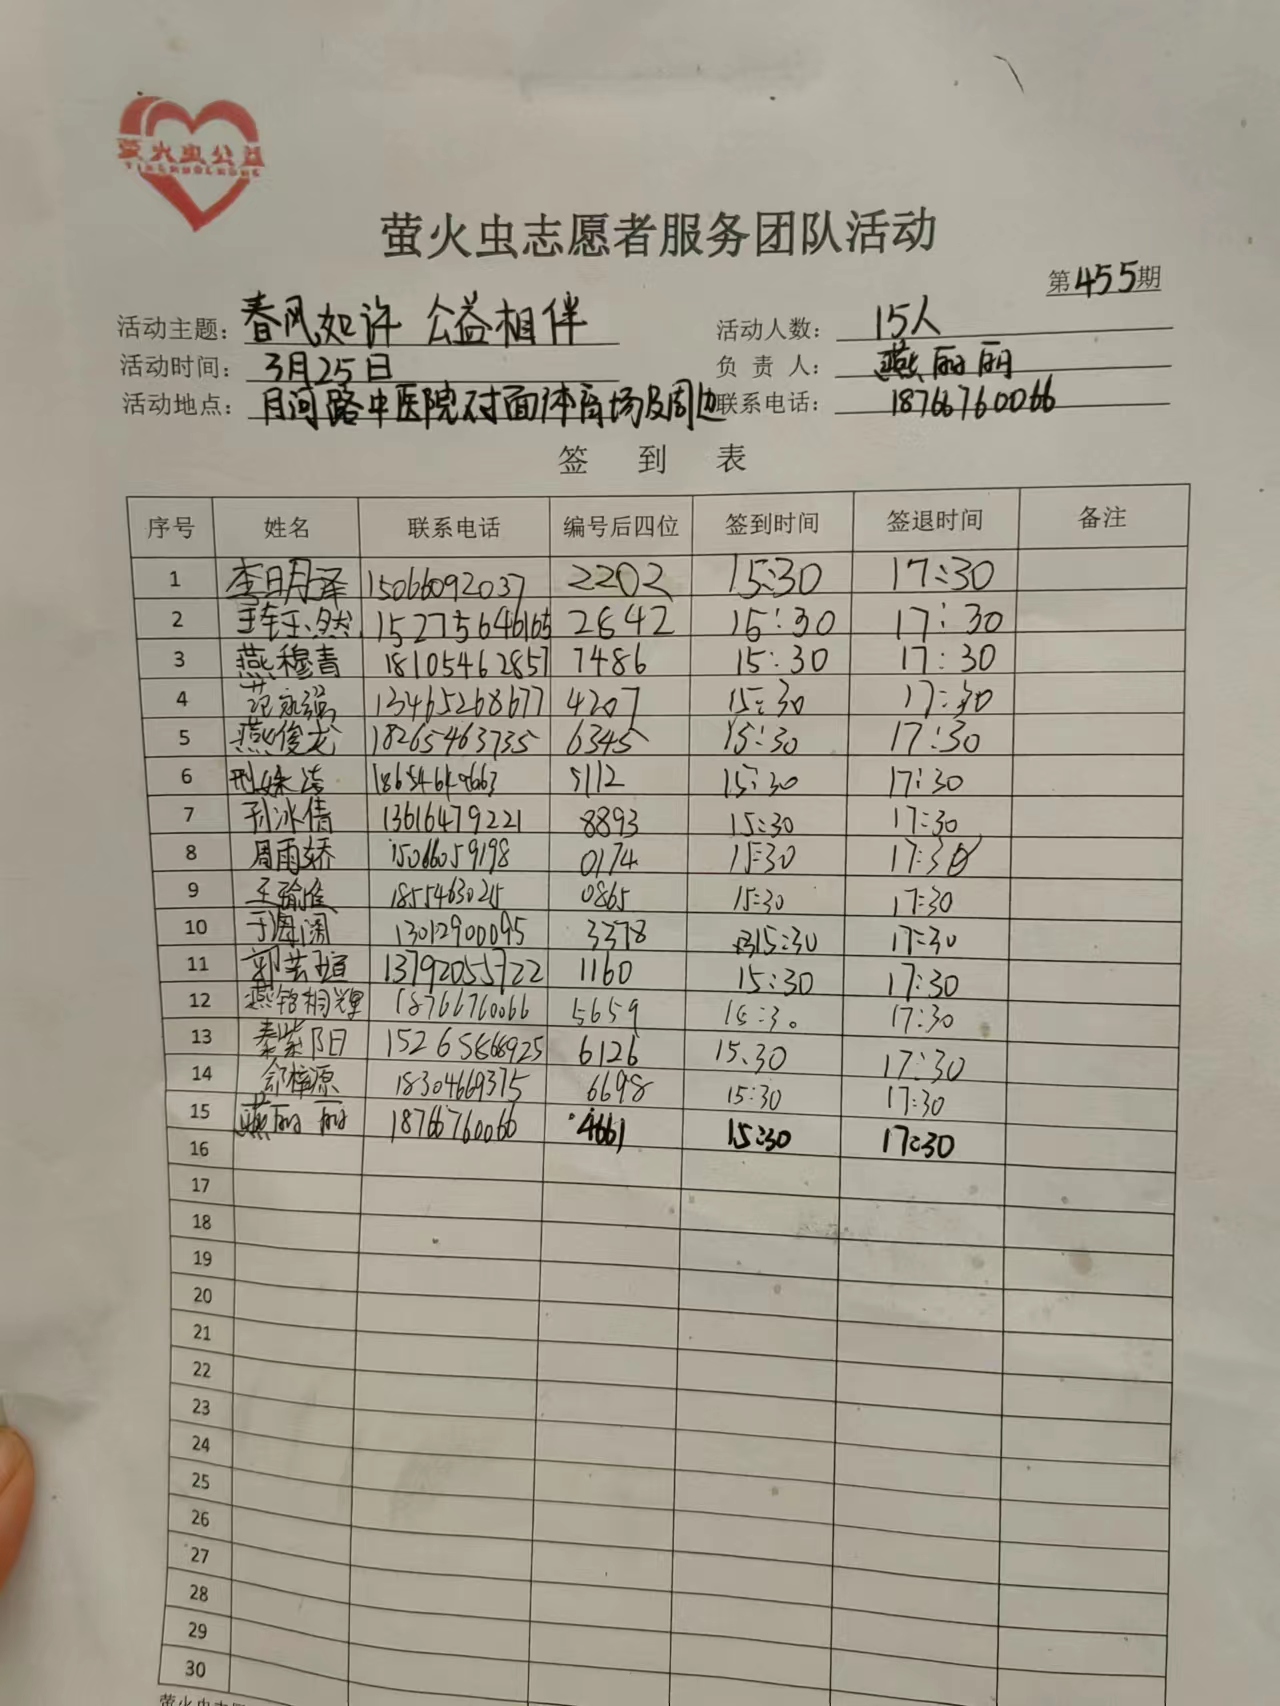 萤火虫公益
萤火虫志愿者服务团队活动
第455期
活动主题：春风如许 公益相伴 活动人数：15人
活动时间：3月25日 负责人：燕丽丽
活动地点：月河路中医院对面体育场及周边 联系电话：18766760066
签到表
序号 姓名 联系电话 编号后四位 签到时间 签退时间 备注
1 李明泽 15066092037 2202 15:30 17:30
2 15275646165 2642 15:30 17:30
3 燕穆青 18105462857 7486 15:30 17:30
4 范永强 13465268677 4207 15:30 17:30
5 燕俊龙 18265463735 6345 15:30 17:30
6 15:30 17:30
7 孙冰倩 13616479221 8893 15:30 17:30
8 周雨娇 15066059198 0174 15:30 17:30
9 0865 15:30 17:30
10 于海阔 13012900095 3378 15:30 17:30
11 13792055722 1160 15:30 17:30
12 18766760066 5659 15:30 17:30
13 秦紫阳 6126 15:30 17:30
14 18304669375 6698 15:30 17:30
15 燕丽丽 18766760066 4661 15:30 17:30
16
17
18
19
20
21
22
23
24
25
26
27
28
29
30